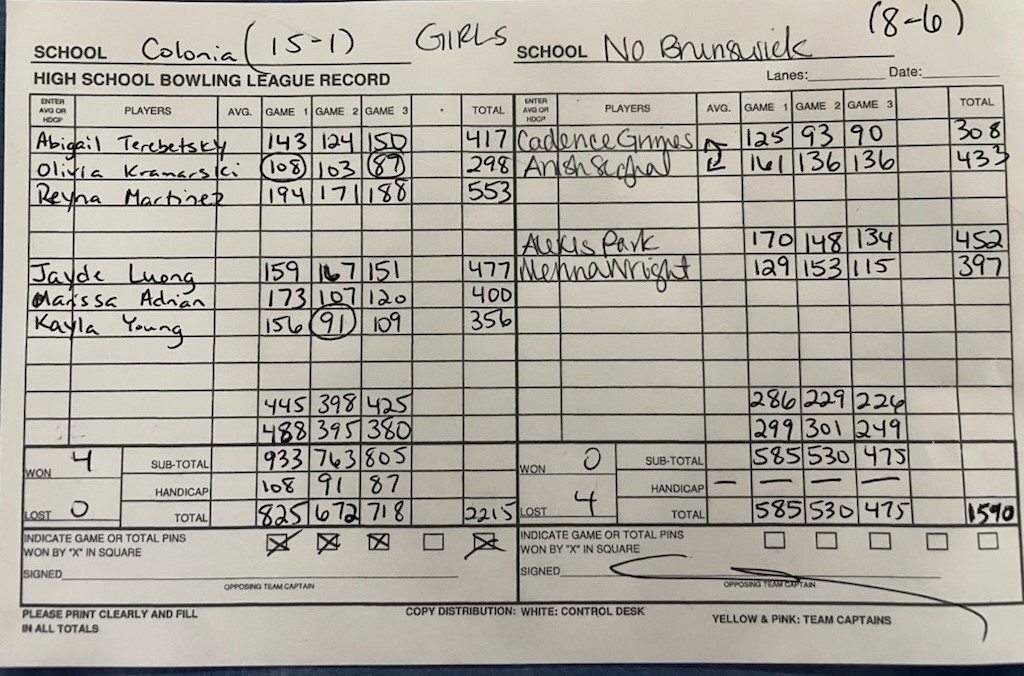 SCHOOL Colonia (15-1) GIRLS SCHOOL No Brunswick (8-6)
HIGH SCHOOL BOWLING LEAGUE RECORD Lanes: Date:
ENTER AVG OR HDCP PLAYERS AVG. GAME 1 GAME 2 GAME 3 TOTAL ENTER AVG OR HDCP PLAYERS AVG. GAME 1 GAME 2 GAME 3 TOTAL
Abigail Terebetsky 143 124 150 417 Cadence Grimes 125 93 90 308
Olivia Kramarski 108 103 87 298 Anish Seghal 161 136 136 433
Reyna Martinez 194 171 188 553
Alexis Park 170 148 134 452
Jayde Luong 159 167 151 477 Menna Wright 129 153 115 397
Marissa Adrian 173 107 120 400
Kayla Young 156 91 109 356
445 398 425 286 229 226
488 395 380 299 301 249
WON 4 SUB-TOTAL 933 763 805 WON 0 SUB-TOTAL 585 530 475
HANDICAP 108 91 87 HANDICAP — — — —
LOST 0 TOTAL 825 672 718 2215 LOST 4 TOTAL 585 530 475 1590
INDICATE GAME OR TOTAL PINS INDICATE GAME OR TOTAL PINS
WON BY "X" IN SQUARE WON BY "X" IN SQUARE
SIGNED SIGNED
OPPOSING TEAM CAPTAIN OPPOSING TEAM CAPTAIN
PLEASE PRINT CLEARLY AND FILL COPY DISTRIBUTION: WHITE: CONTROL DESK YELLOW & PINK: TEAM CAPTAINS
IN ALL TOTALS